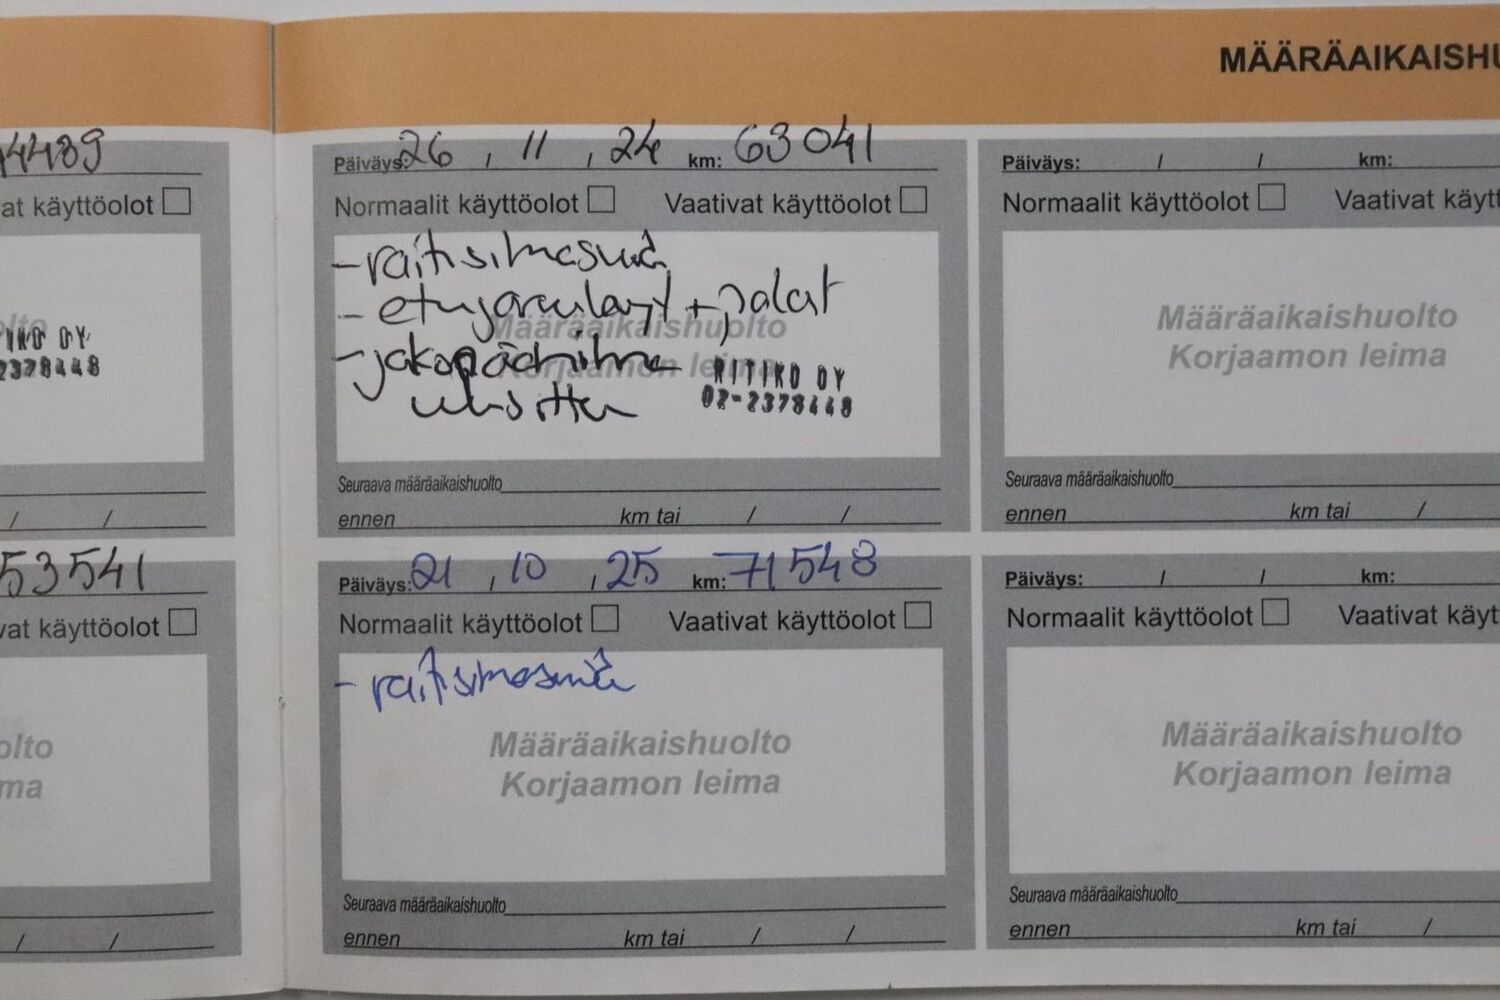 MÄÄRÄAIKAISHU
4489
at käyttöolot
OY
2378448
/ /
53541
vat käyttöolot
olto
ma
/ /
Päiväys: 26 / 11 / 24 km: 63041
Normaalit käyttöolot Vaativat käyttöolot
- raitisilmasuod
- etujarrulevyt + palat
- jakopäähihna
uusittu
Määräaikaishuolto
Korjaamon leima
RITIKO OY
02-2378448
Seuraava määräaikaishuolto
ennen km tai / /
Päiväys: 21 / 10 / 25 km: 71548
Normaalit käyttöolot Vaativat käyttöolot
- raitisilmasuod
Määräaikaishuolto
Korjaamon leima
Seuraava määräaikaishuolto
ennen km tai / /
Päiväys: / / km:
Normaalit käyttöolot Vaativat käytt
Määräaikaishuolto
Korjaamon leima
Seuraava määräaikaishuolto
ennen km tai /
Päiväys: / / km:
Normaalit käyttöolot Vaativat käyt
Määräaikaishuolto
Korjaamon leima
Seuraava määräaikaishuolto
ennen km tai /